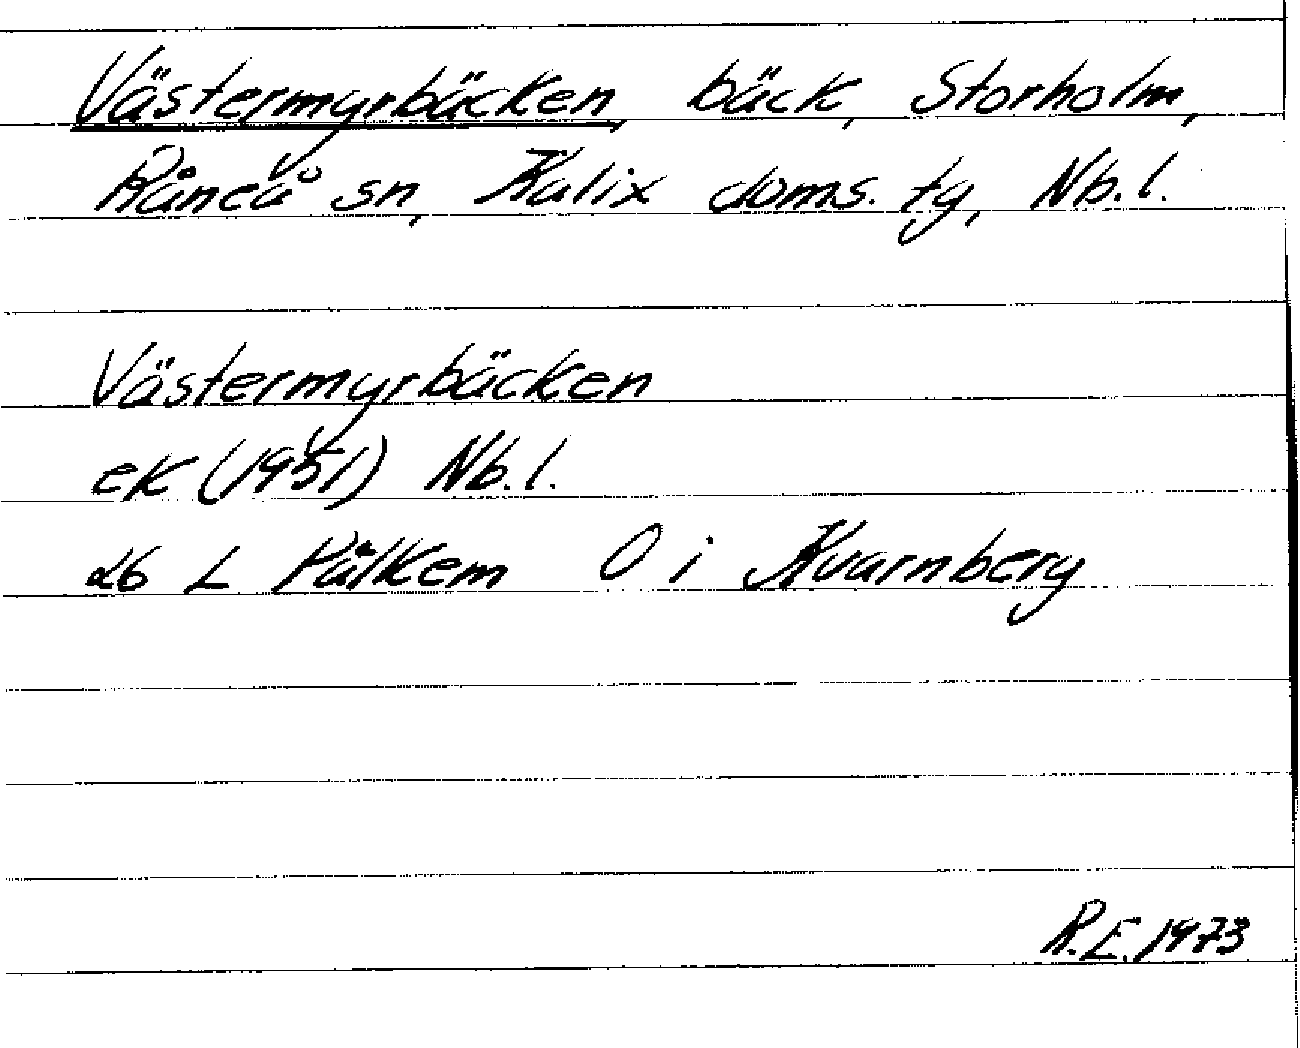 Västermyrbäcken, bäck, Storholm,
Råneå sn, Kalix doms. tg, Nb.l.
Västermyrbäcken
ek (1951) Nb.l.
26 L Pålkem O i Kvarnberg
R.E. 1973